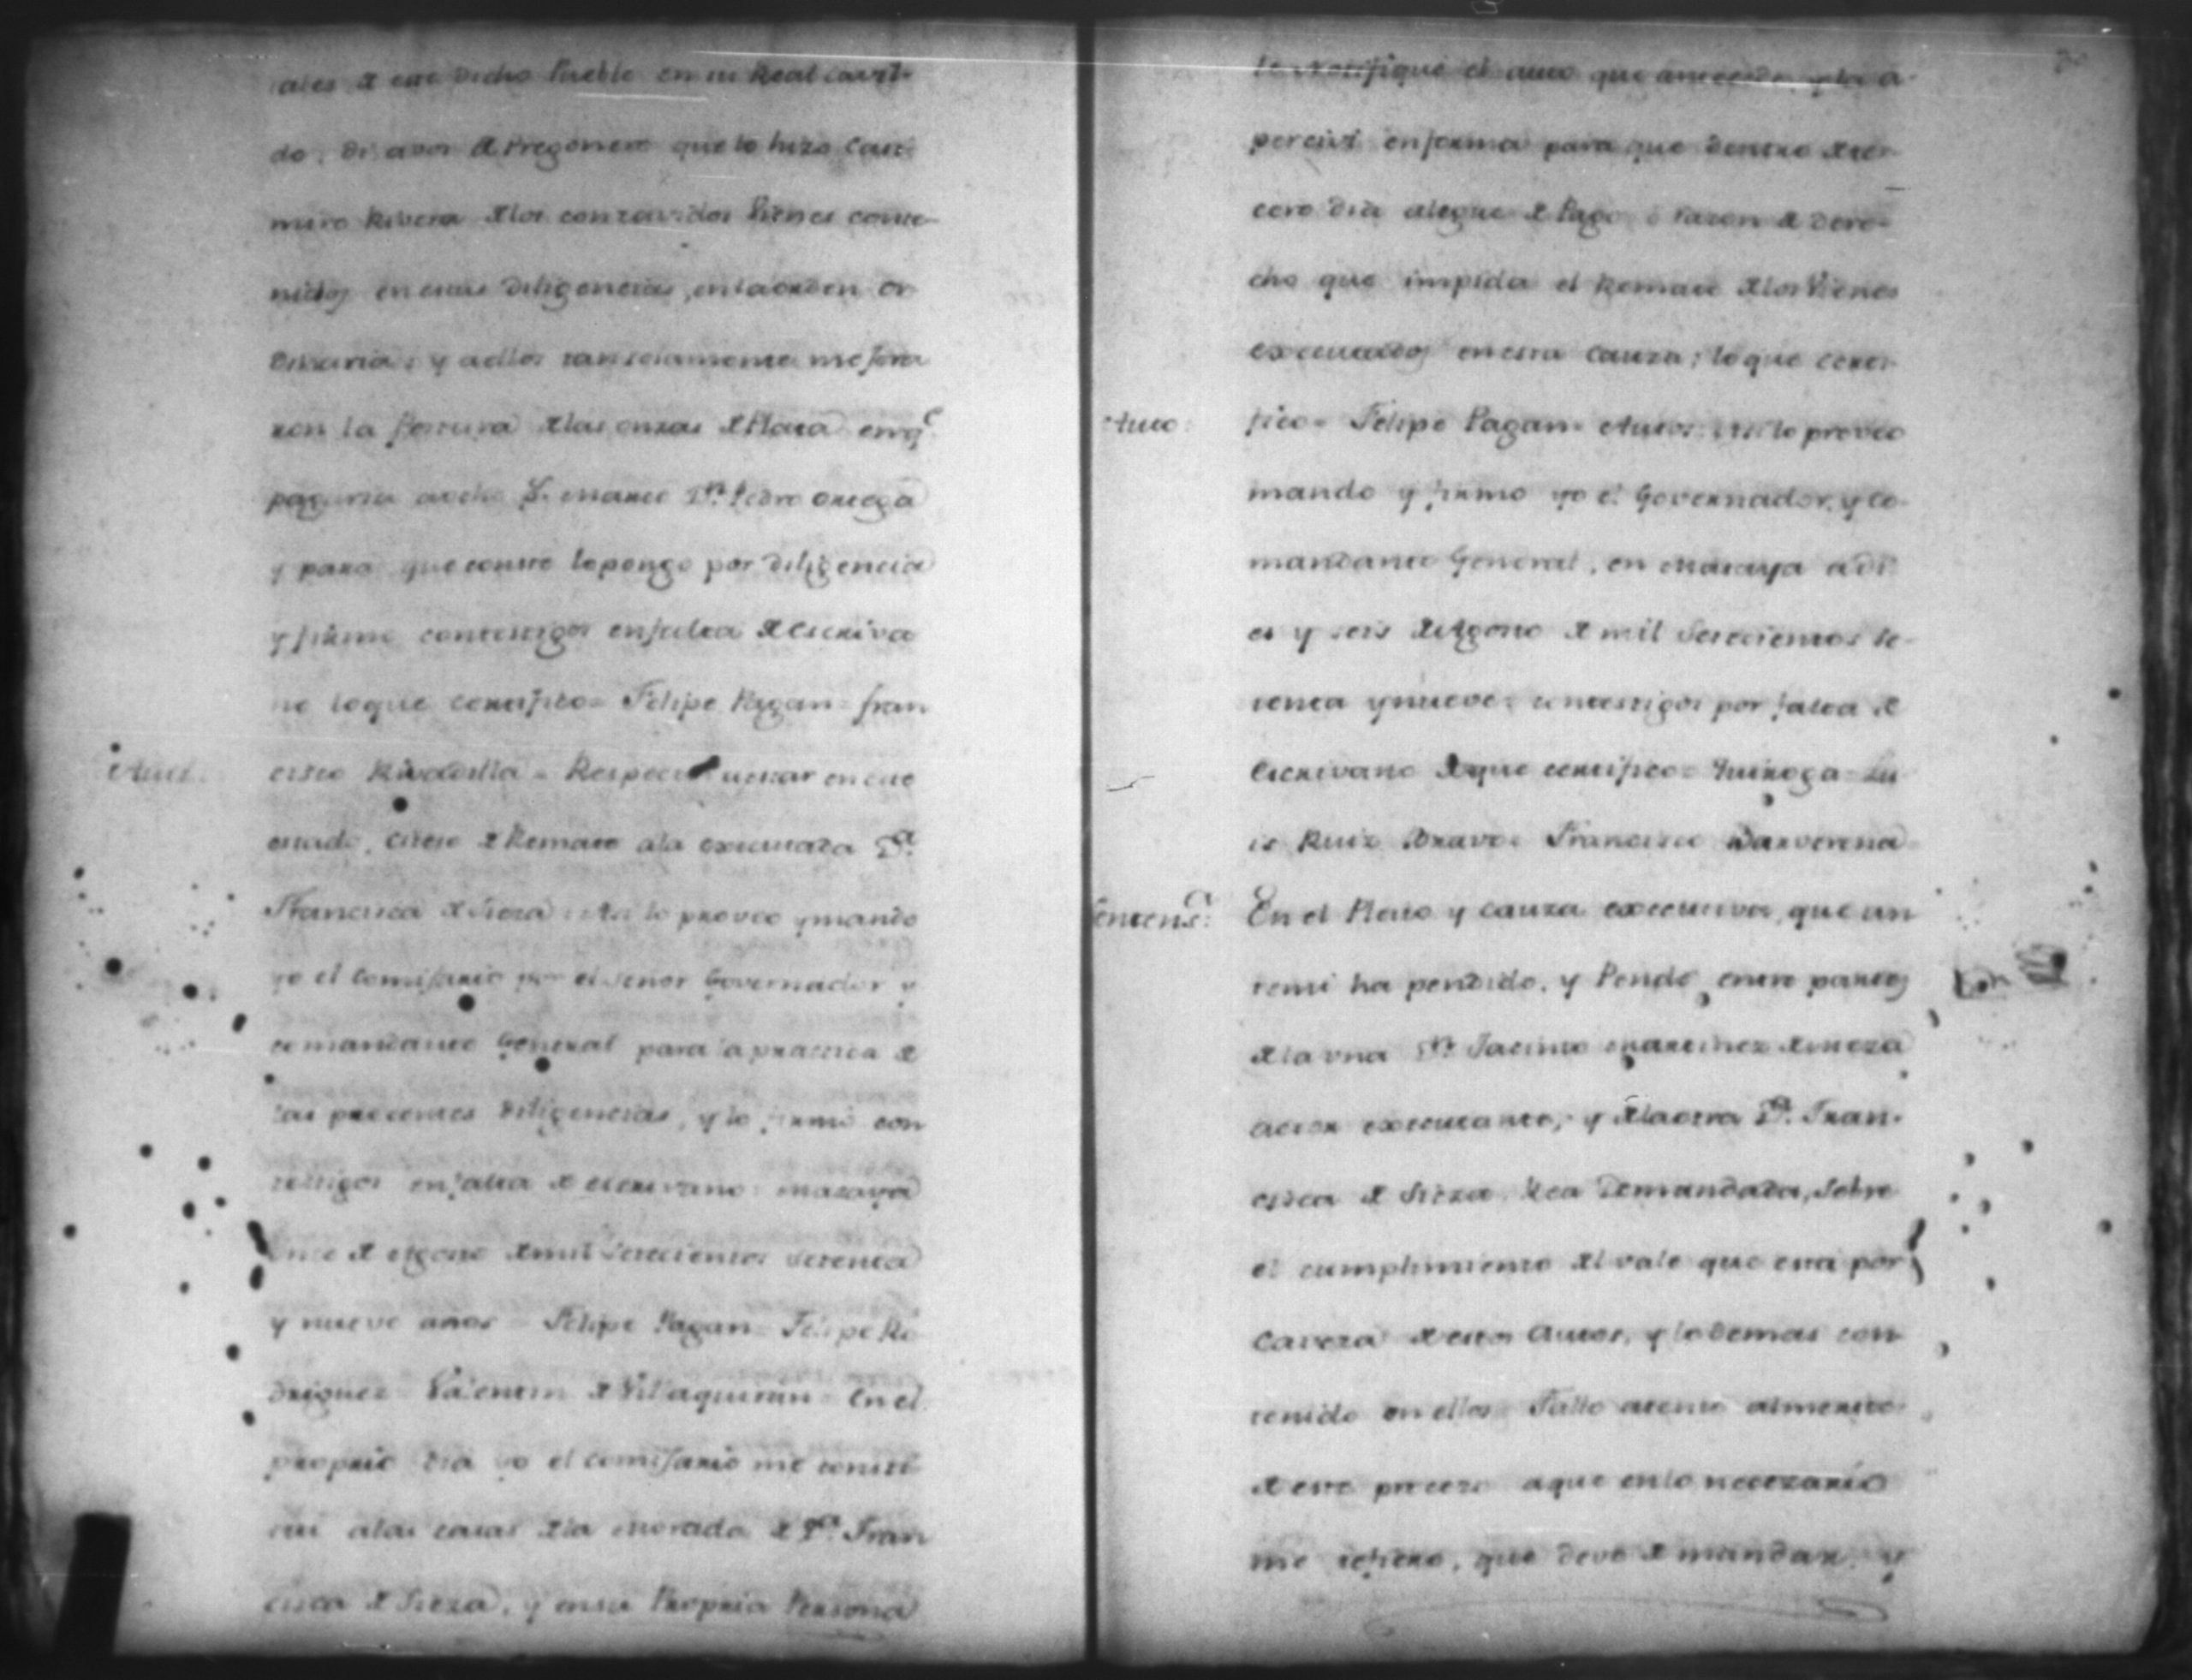 ales de este Dicho Pueblo en su Real Cavil-
do, di avos de Pregonero que lo hizo Casi-
miro Rivera de los consavidos Vienes conte-
nidos en estas Diligencias, en la orden or
dinaria; y a ellos tan solamente mejora
ron la postura de las onzas de Plata en q.e
pagaria dcho S. Marte D.n Pedro Ortega
y para que conste lo pongo por diligencia
y firmé con testigos en falta de Escriva
no lo que certifico= Felipe Pagan= Fran
cisco Rivadilla = Respecto estar en este
Auto:
estado, citese de Remate ala executada D.a
Francisca de Sieza: Asi lo proveo y mando
yo el Comisario por el señor Governador y
comandante General para la practica de
las precentes Diligencias, y lo firmé con
testigos en falta de escrivano: Masaya
once de Agosto de mil Setecientos Setenta
y nueve años = Felipe Pagan= Felipe Ro
driguez Valentin de Villaquiran= En el
proprio dia yo el Comisario me consti-
tui alas casas de la morada de D.a Fran
cisca de Sieza, y en su Propria Persona
le notifiqué el auto que antecede, y la a-
perciví en forma para que dentro de ter-
cero dia alegue de Pago ó razon de dere-
cho que impida el Remate de los Vienes
executados en esta Cauza; lo que certi-
Auto:
fico= Felipe Pagan= Autos: Asi lo proveo
mando y firmo yo el Governador, y Co-
mandante General, en Masaya a di-
es y seis de Agosto de mil Setecientos se-
tenta y nueve: con testigos por falta de
Escrivano de que certifico= Quiroga= Lu-
is Ruiz Bravo= Francisco
Sentens.a:
En el Pleito y cauza executiva, que an
te mi ha pendido, y Pende entre partes
de la vna D.n Jacinto Martinez de
actor executante, y de la otra D.a Fran-
cisca de Sieza Rea Demandada, Sobre
el cumplimiento del vale que está por
Caveza de estos Autos, y lo demas con
tenido en ellos= Fallo atento al merito
de este proceso aque en lo necezario
me refiero, que devo de mandar, y